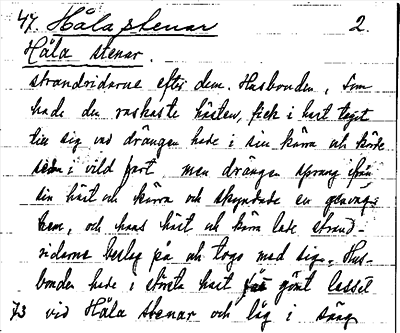 47. Håla stenar 2.
Håla stenar.
strandridarne efter dem. Husbonden, som
hade den raskaste hästen, fick i hast taget
till sig vad drängen hade i sin kärra och körde
i vild fart men drängen sprang ifrån
sin häst och kärra och skyndade en genväg
hem, och hans häst och kärra lade strand-
ridarne beslag på och togo med sig. Hus-
bonden hade i största hast gömt lasset
73 vid Håla stenar och låg i säng